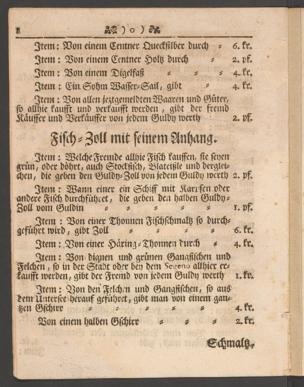 8 ( o )
Item: Von einem Centner Quecksilber durch 6. kr.
Item: Von einem Centner Holtz durch 2. pf.
Item: Von einem Digelfaß 4. kr.
Item: Ein Sohm Wasser-Sail, gibt 4. kr.
Item: Von allen jetzgemeldten Waaren und Güter,
so allhie kaufft und verkaufft werden, gibt der frembd
Käuffer und Verkäuffer von jedem Guldy werth 2. pf.
Fisch-Zoll mit seinem Anhang.
Item: Welche Frembde allhie Fisch kauffen, sie seyen
grün, oder döhrt, auch Stockfisch, Blateisle und dergleichen,
die geben den Guldy-Zoll von jedem Guldy werth 2. pf.
Item: Wann einer ein Schiff mit Karpfen oder
andere Fisch durchführet, die geben den halben Guldy-
Zoll vom Guldin 1. pf.
Item: Von einer Thonnen Fischschmaltz so durch-
geführt wird, gibt Zoll 6. kr.
Item: Von einer Häring-Thonnen durch 4. kr.
Item: Von dignen und grünen Gangfischen und
Felchen, so in der Statt oder bey dem Segeno allhier er-
kaufft werden, gibt der Fremd von jedem Guldy werth 1. kr.
Item: Von den Felchen und Gangfischen, so aus
dem Untersee herauf geführet, gibt man von einem gan-
tzen Gschirr 4. kr.
Von einem halben Gschirr 2. kr.
Schmaltz-